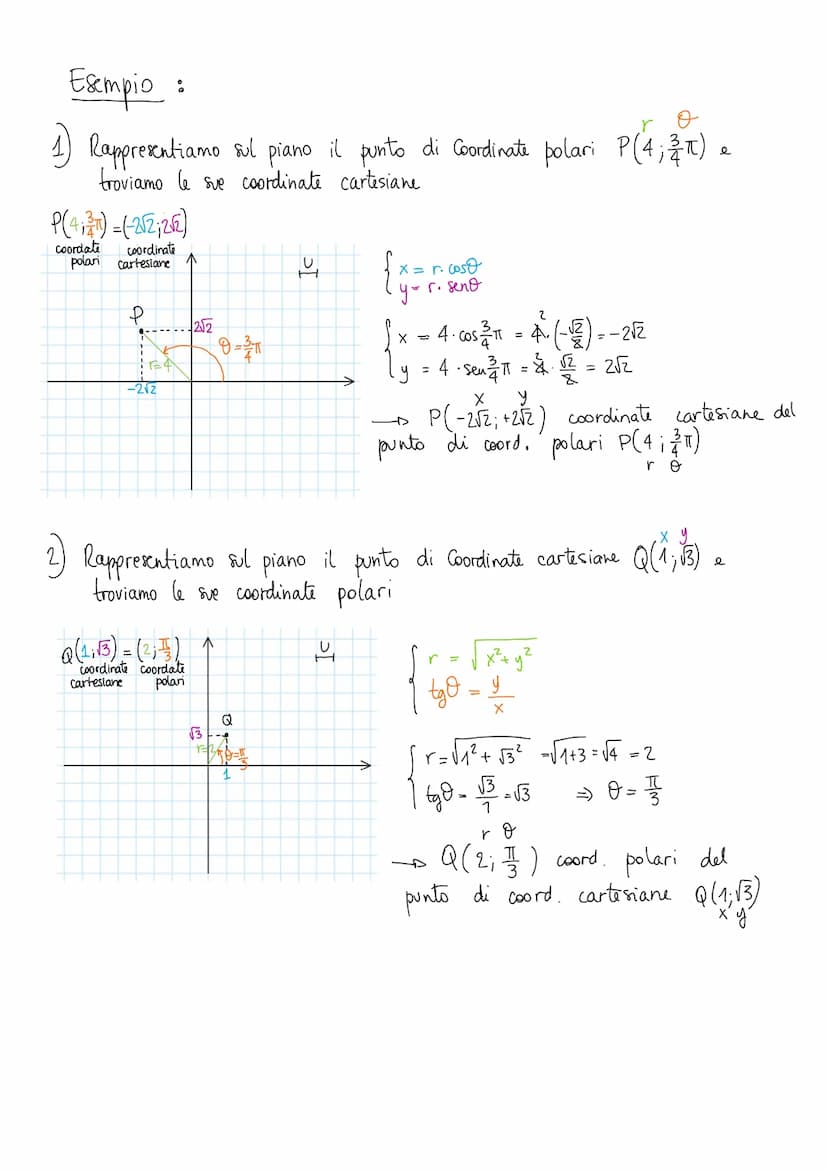 Esempio :
r θ
1) Rappresentiamo sul piano il punto di Coordinate polari P(4; 3/4 π) e
troviamo le sue coordinate cartesiane
P(4; 3/4 π) = (-2√2; 2√2)
coordate coordinate
polari cartesiane
U
P
2√2
θ = 3/4 π
r=4
-2√2
{ x = r · cosθ
y = r · senθ
{ x = 4 · cos 3/4 π = 4 · (-√2/2) = -2√2
y = 4 · sen 3/4 π = 4 · √2/2 = 2√2
x y
→ P(-2√2; +2√2) coordinate cartesiane del
punto di coord. polari P(4; 3/4 π)
r θ
x y
2) Rappresentiamo sul piano il punto di Coordinate cartesiane Q(1; √3) e
troviamo le sue coordinate polari
Q(1; √3) = (2; π/3)
coordinate coordate
cartesiane polari
U
Q
√3
r=2 θ=π/3
1
{ r = √x²+y²
tgθ = y/x
{ r = √1² + √3² = √1+3 = √4 = 2
tgθ = √3/1 = √3 ⇒ θ = π/3
r θ
→ Q(2; π/3) coord. polari del
punto di coord. cartesiane Q(1; √3)
x y